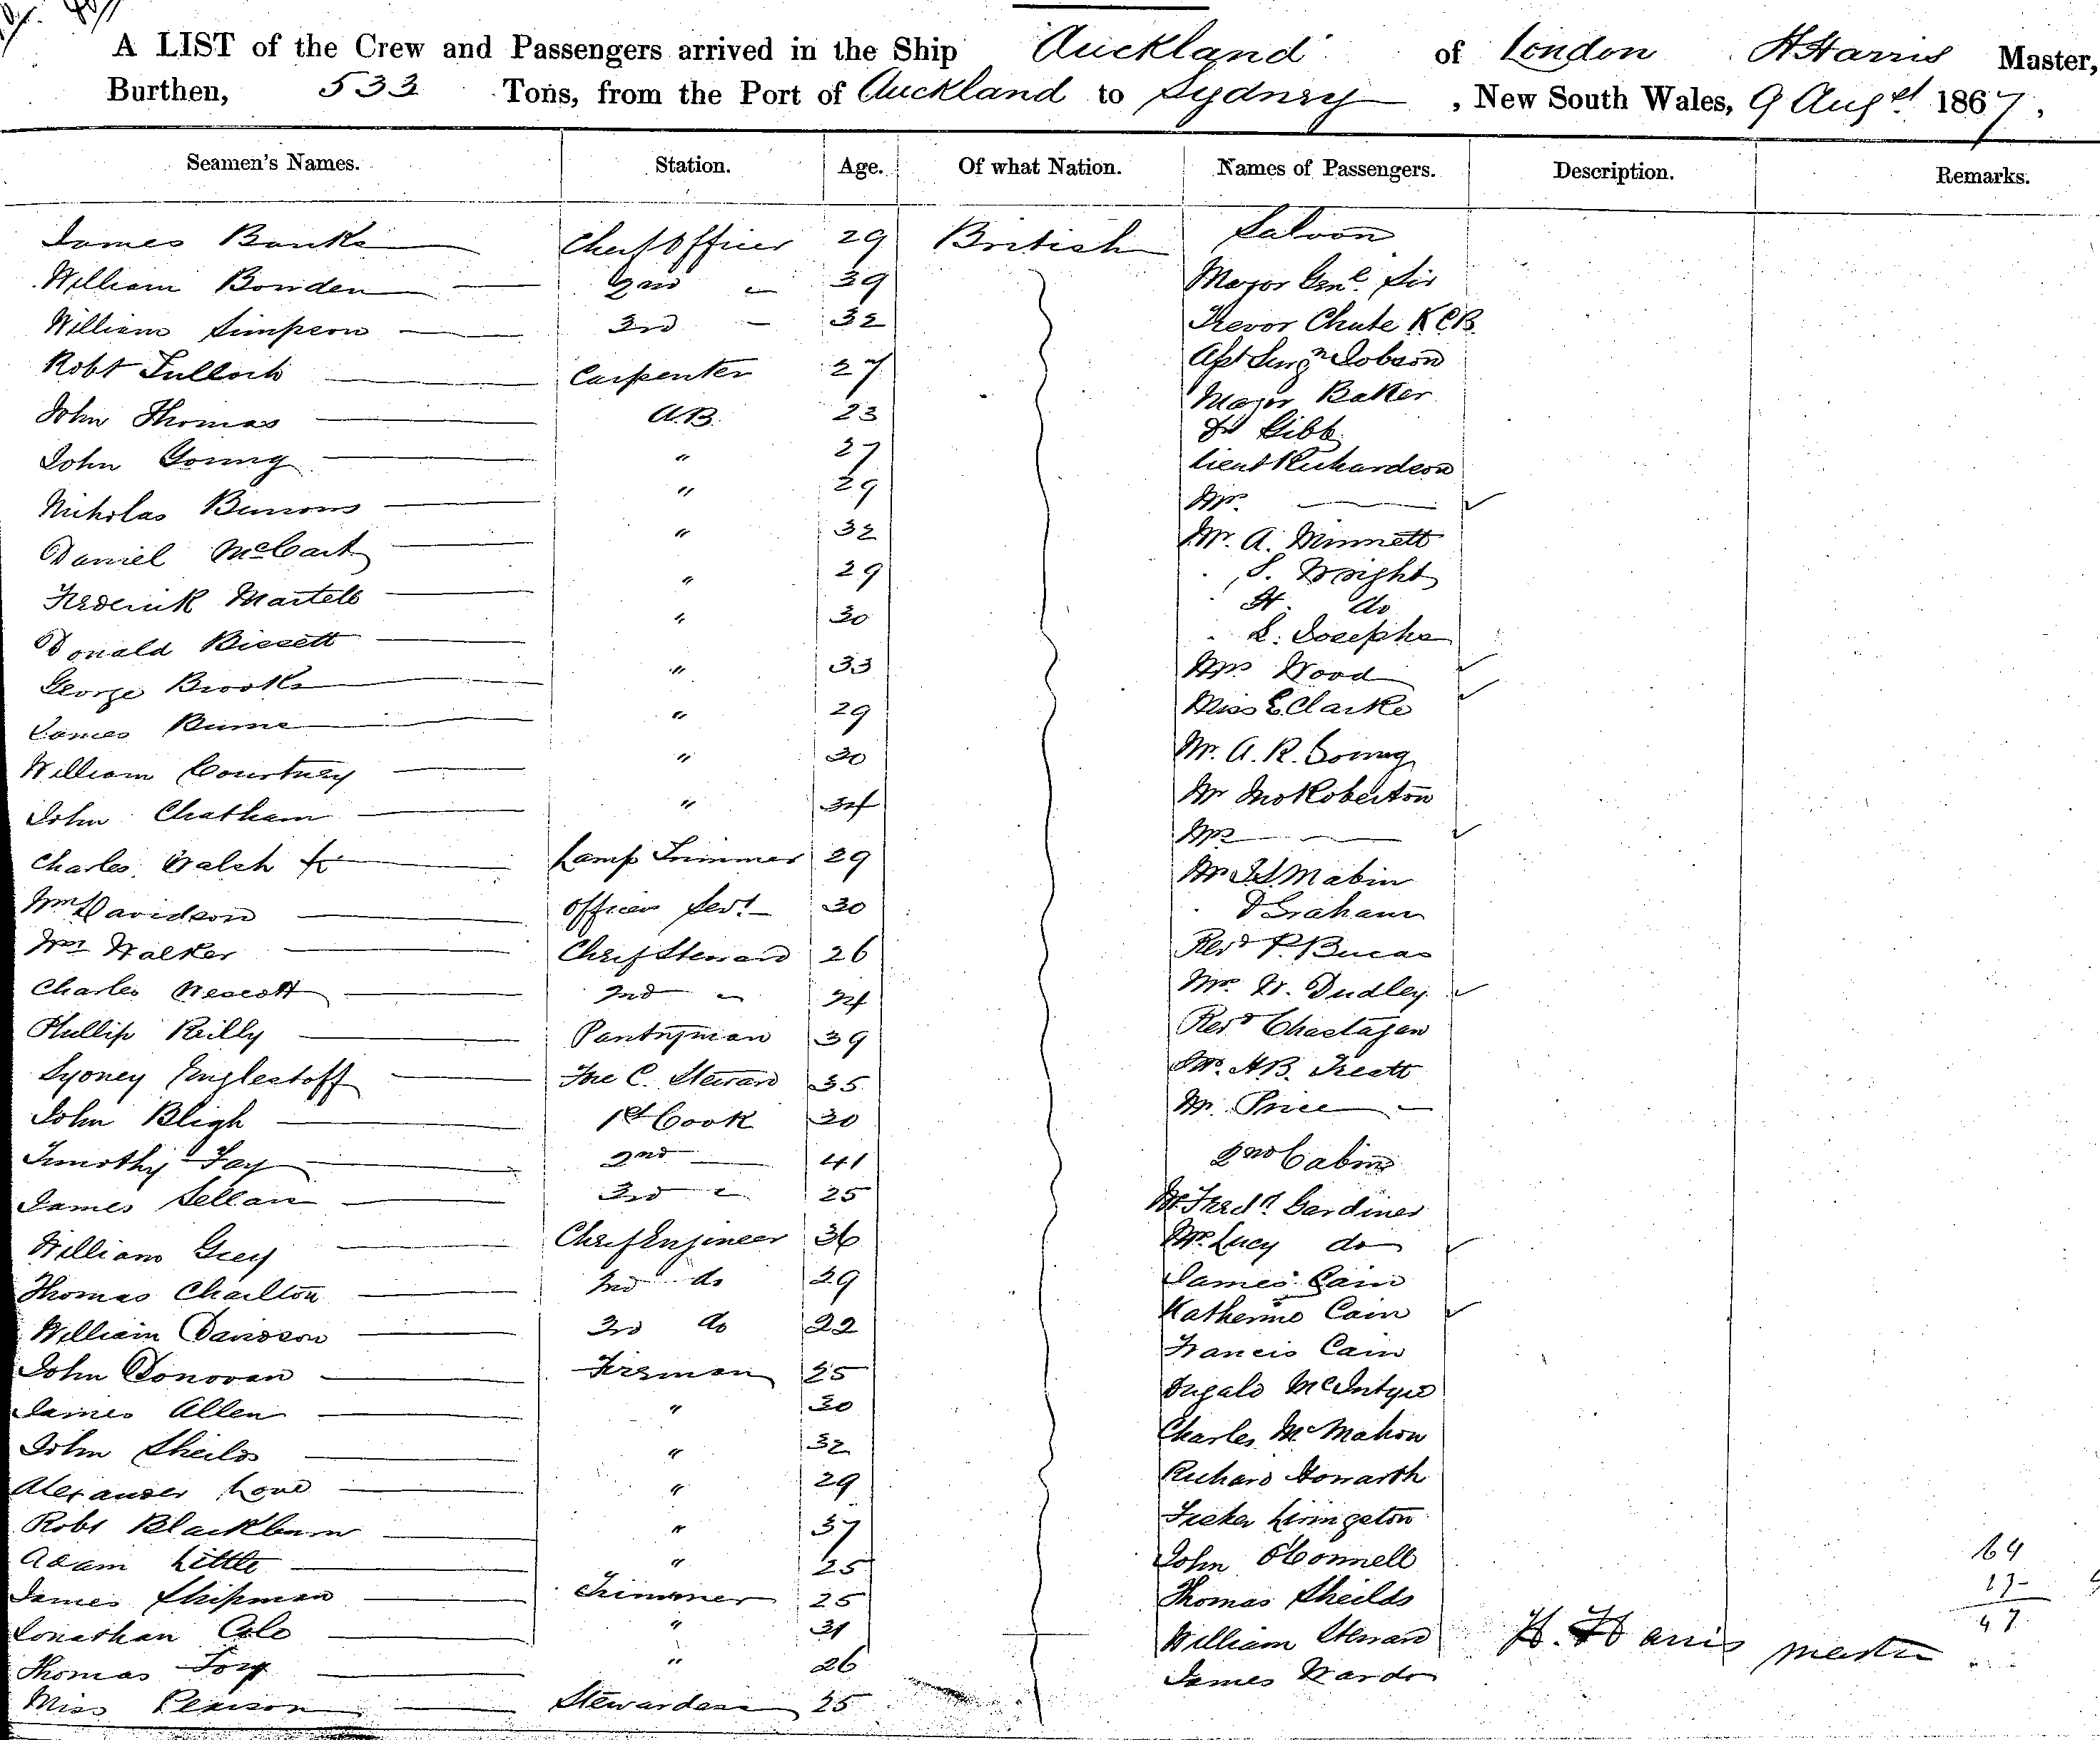 A LIST of the Crew and Passengers arrived in the Ship Auckland of London H Harris Master,
Burthen, 533 Tons, from the Port of Auckland to Sydney, New South Wales, 9 Augst 1867.
Seamen's Names. Station. Age. Of what Nation. Names of Passengers. Description. Remarks.
James Banks Chief Officer 29 British Saloon
William Bowden 2nd " 39 Major Genl. Sir
William Simpson 3rd " 32 Trevor Chute KCB
Robt Tulloch Carpenter 27 Asst Surgn Dobson
John Thomas A.B. 23 Major Baker
John Young " 27 Dr Gibb
Nicholas " 29 Lieut Richardson
Daniel McCart " 32 Mrs.
Frederick Martell " 29 Mr. A. Minnett
Donald Bissett " 30 S. Wright
George Brooks " 33 H. do
James " 29 L. Josephs
William Courtney " 30 Mrs Wood
John Chatham " 34 Miss E Clarke
Charles Walsh Lamp Trimmer 29 Mr. A. R. Young
Wm Davidson Officers Servt 30 Mr Jno Roberton
Wm Walker Chief Steward 26 Mrs
Charles Wescott 2nd " 24 Mr Mabin
Phillip Reilly Pantryman 39 D Graham
Sydney Englestoff Fore C. Steward 35 Revd P.
John Bligh 1st Cook 30 Mrs. Dudley
Timothy Fay 2nd 41 Revd
James Sellan 3rd " 25 Mr. H.B.
William Grey Chief Engineer 36 Mr. Price
Thomas Charlton 2nd do 29 2nd Cabin
William Davidson 3rd do 22 Mr Fredk Gardiner
John Donovan Fireman 25 Mrs Lucy do
James Allen " 30 James Cain
John Sheilds " 32 Katherine Cain
Alexander Love " 29 Francis Cain
Robt Blackburn " 37 Dugald McIntyre
Adam Little " 25 Charles McMahon
James Shipman Trimmer 25 Richard Howarth
Jonathan Cole " 31 Livingston
Thomas " 26 John O'Connell
Miss Pearson Stewardess 25 Thomas Sheilds
William Steward
James Wardr
H. Harris master
64
17
47